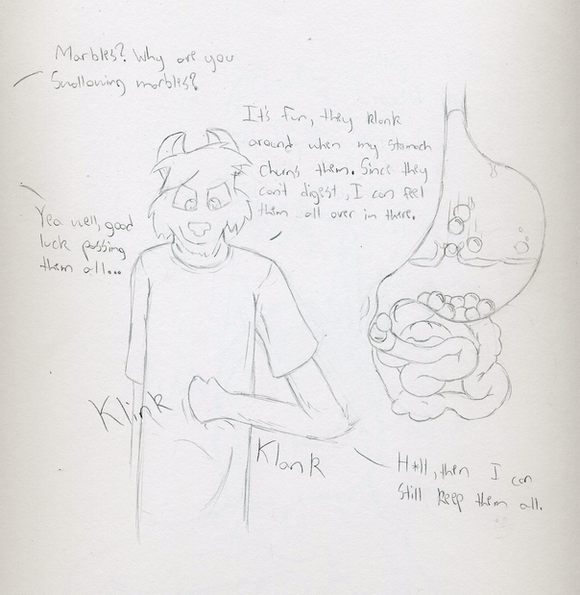 Marbles? Why are you
Swallowing marbles?
It's fun, they klonk
around when my stomach
churns them. Since they
can't digest, I can feel
them all over in there.
Yea well, good
luck passing
them all...
Klink
Klank
H*ll, then I can
still keep them all.